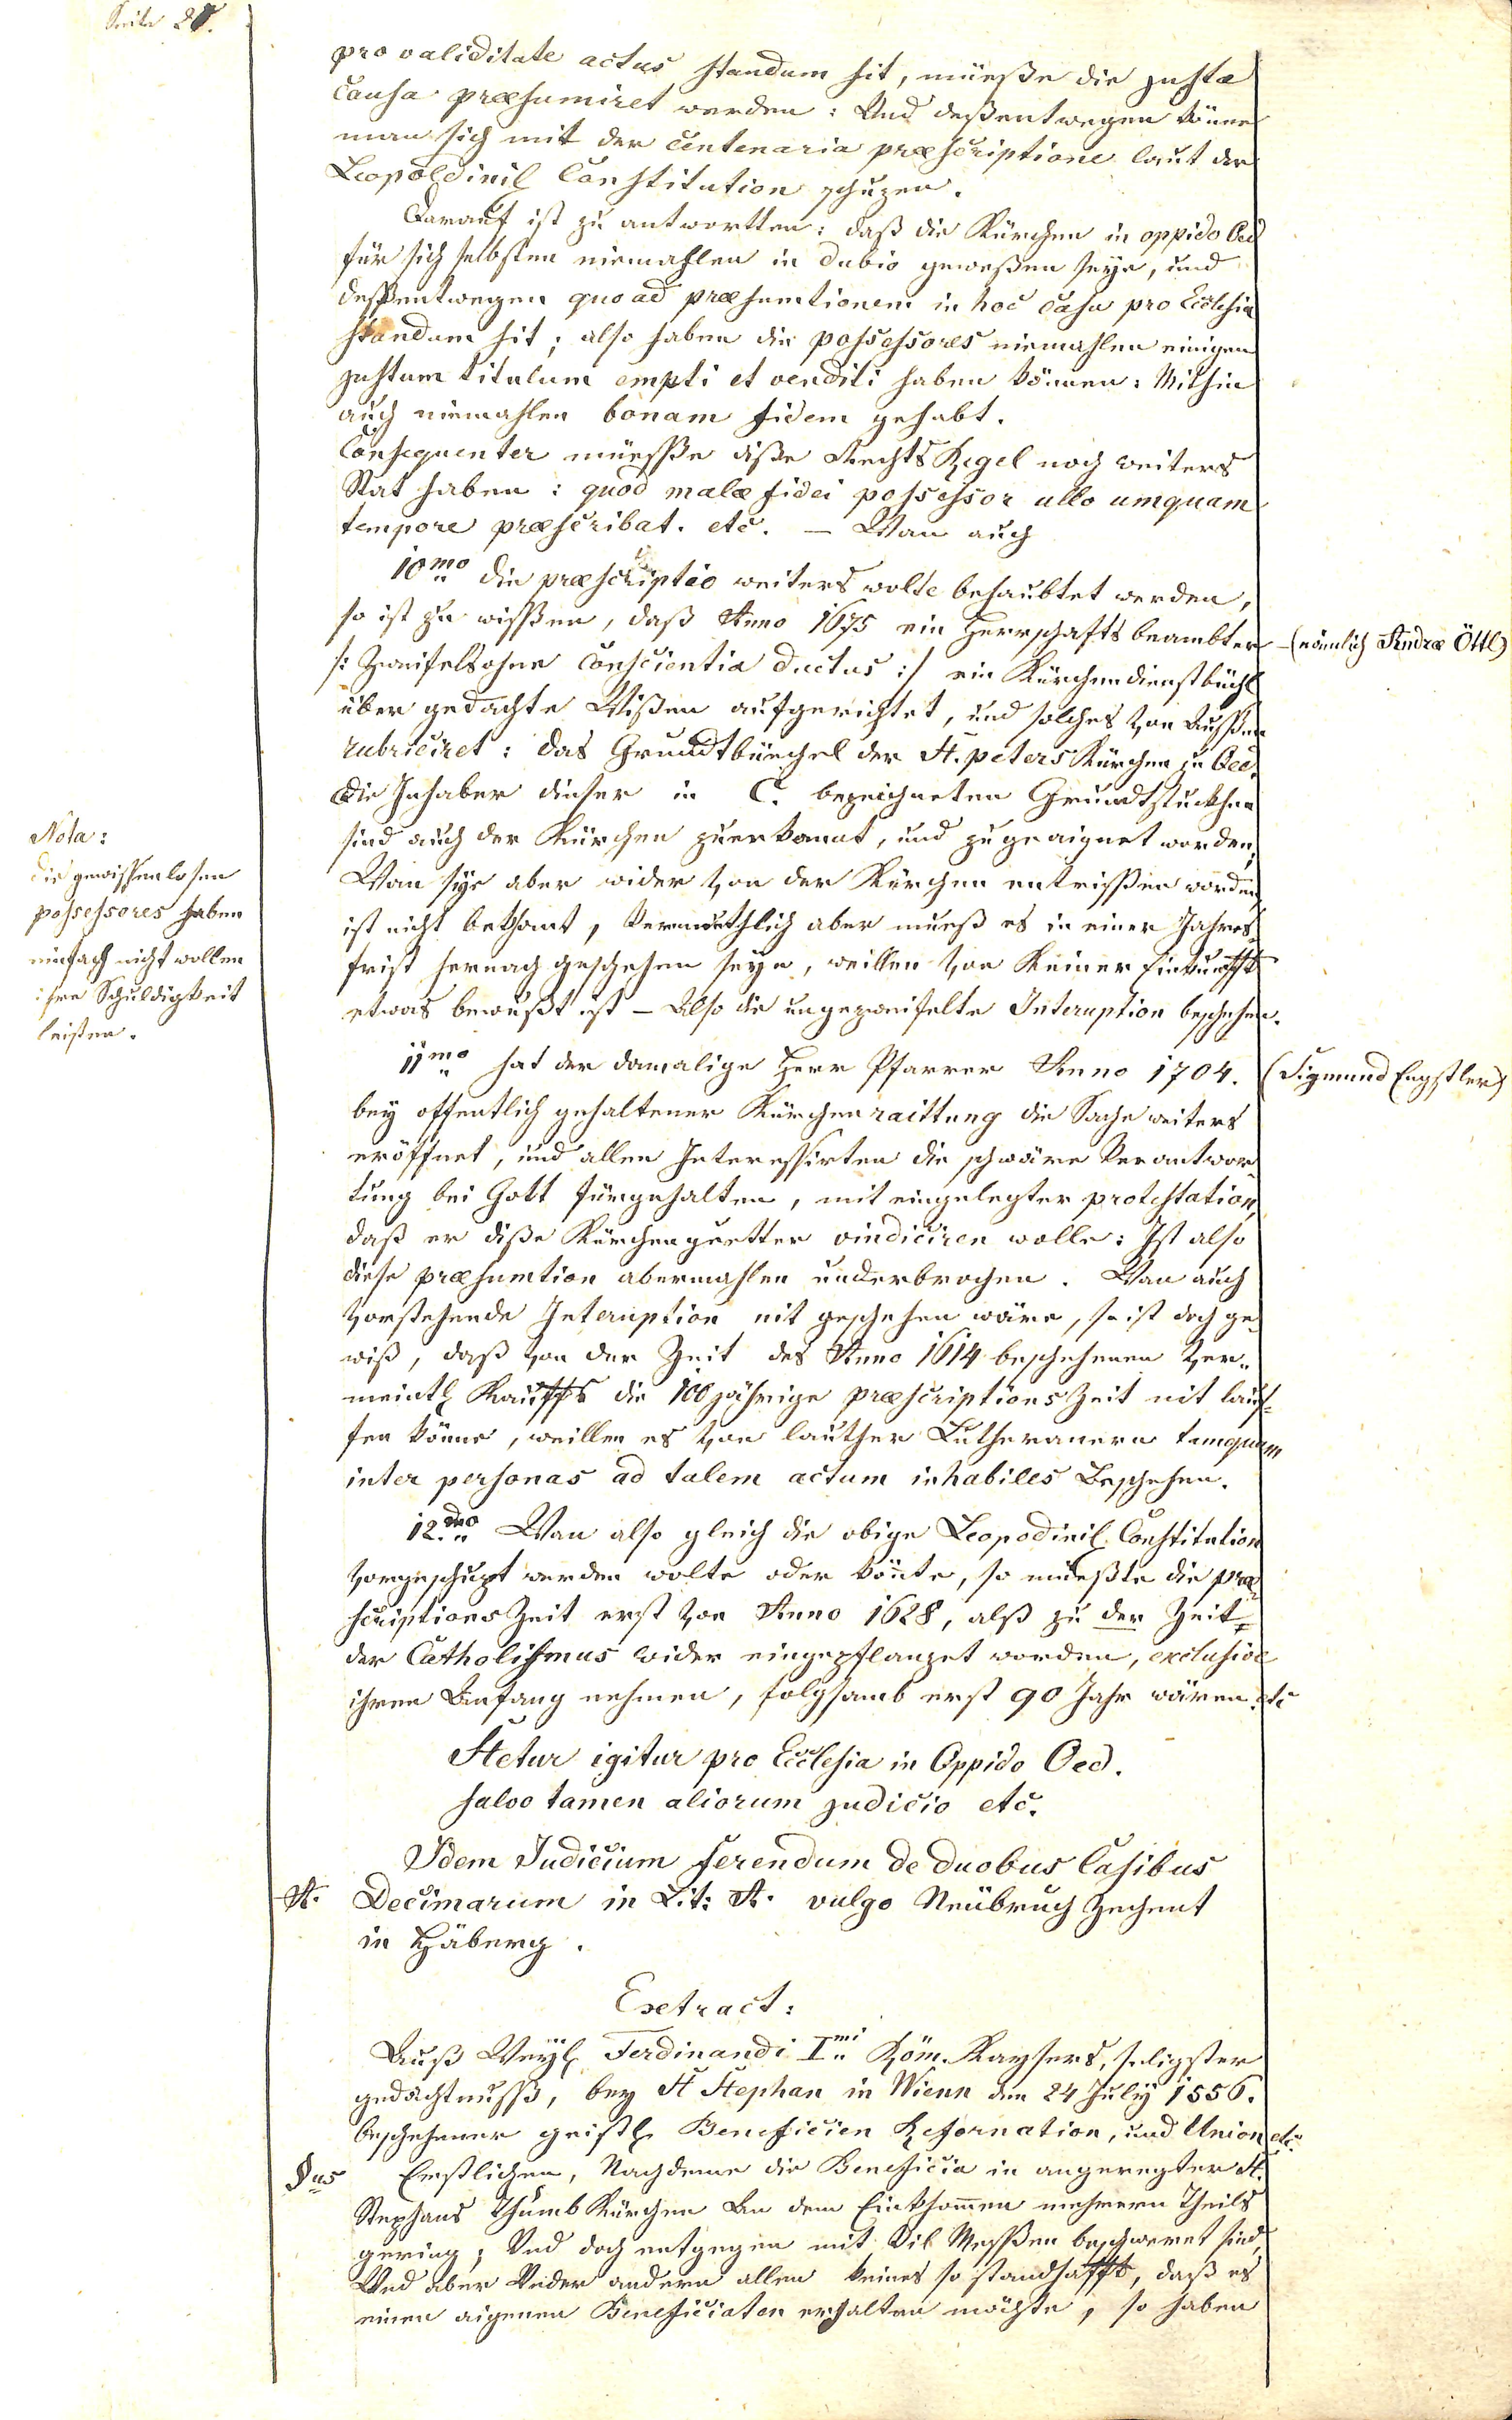 Seite 28.
pro validitate actus standum sit, müeße die justa
Causa præsumiret werden: Und deßentwegen könne
man sich mit der centenaria præscriptione laut der
Leopoldinil Constitution schuzen.
Darauf ist zu antwortten: daß die Kürchen in oppido Oed
für sich selbsten niemahlen in dubio geweßen seye, und
desßentwegen quo ad præsumtionem in hoc Casu pro Ecclesia
standum sit; also haben die possessores niemahlen einigen
justum titulum empti et venditi haben können: Mithin
auch niemahlen bonam fidem gehabt.
Consequenter müesße diße Rechts Regel noch weiters
Stat haben: quod malæ fidei possessor ullo umquam
tempore præscribat. etc. — Wan auch
10mo die præscriptio weiters wolte behaubtet werden,
so ist zu wisßen, daß Anno 1675 ein Herrschaftsbeambter
(nämlich Andræ Öttl)
/: Zweifelsohne Conscientia ductus :/ ein Kürchendienstbüchl
über gedachte Wißen aufgerichtet, und solches von Aussßen
rubriciret: das Grundtbüechel der St. peters Kürchen zu Oed.
Die Inhaber dieser in C. bezeichneten Grundtstuckhen
sind auch der Kürchen zuerkannt, und zugeaignet worden,
Wan sye aber wider von der Kürchen entrisßen worden
ist nicht bekhant, Vermuethlich aber mueß es in einer Jahres
frist hernach geschehen seye, weillen von Keiner Einkunfft
etwas bewußt ist – Also die ungezweifelte Interuption beschehen.
Nota:
die gewissenlosen
possessores haben
einfach nicht wollen
ihre Schuldigkeit
leisten.
11mo hat der damalige Herr Pfarrer Anno 1704.
(Sigmund Engstler)
bey offentlich gehaltener Kürchenraittung die Sache weiters
eröffnet, und allen Interessirten die schwäre Verantwor
tung bei Gott fürgehalten, mit eingelegter protestation,
daß er diße Kürchenguetter vindiciren wolle: Ist also
diese præsumtion abermahlen underbrochen. Wan auch
vorstehende Interuption nit geschehen wäre, so ist doch ge
wiß, daß von der Zeit des Anno 1614 beschehenen Ver
meintl Kauffs die 100 jährige præscriptions Zeit nit lauf
fen könne, weillen es von lauther Lutheranern tamquam
inter personas ad talem actum inhabiles Beschehen.
12do Wan also gleich die obige Leopodinil Constitution
vorgeschupt werden wolte oder könte, so müeßte die præ
scriptions Zeit erst von Anno 1628, alß zu der Zeit
der Catholismus wider eingepflanzet worden, exclusive
ihren Anfang nehmen, folgsamb erst 90 Jahr wären. etc
Stetur igitur pro Ecclesia in Oppido Oed.
salvo tamen aliorum judicio etc.
Idem Judicium ferendum de duobus Casibus
A. Decimarum in Lit: A. vulgo Neübruch Zechent
in Häberg.
Exetract:
Auß Weyl Ferdinandi Imi Röm. Kaysers, seeligster
gedächtnusß, bey St Stephan in Wienn den 24 July 1556.
beschehener geistl. Beneficien Reformation, und Union etc.
§us Erstlichen, Nachdeme die Beneficia in angeregter St.
Stephans Thumb Kürchen An dem Einkhommen mehrern Theils
gering; Und doch entgegen mit Vil Messßen beschweret sind,
Und aber Under andern allen keines so standhafft, daß es
einen aigenen Beneficiaten erhalten möchte, so haben